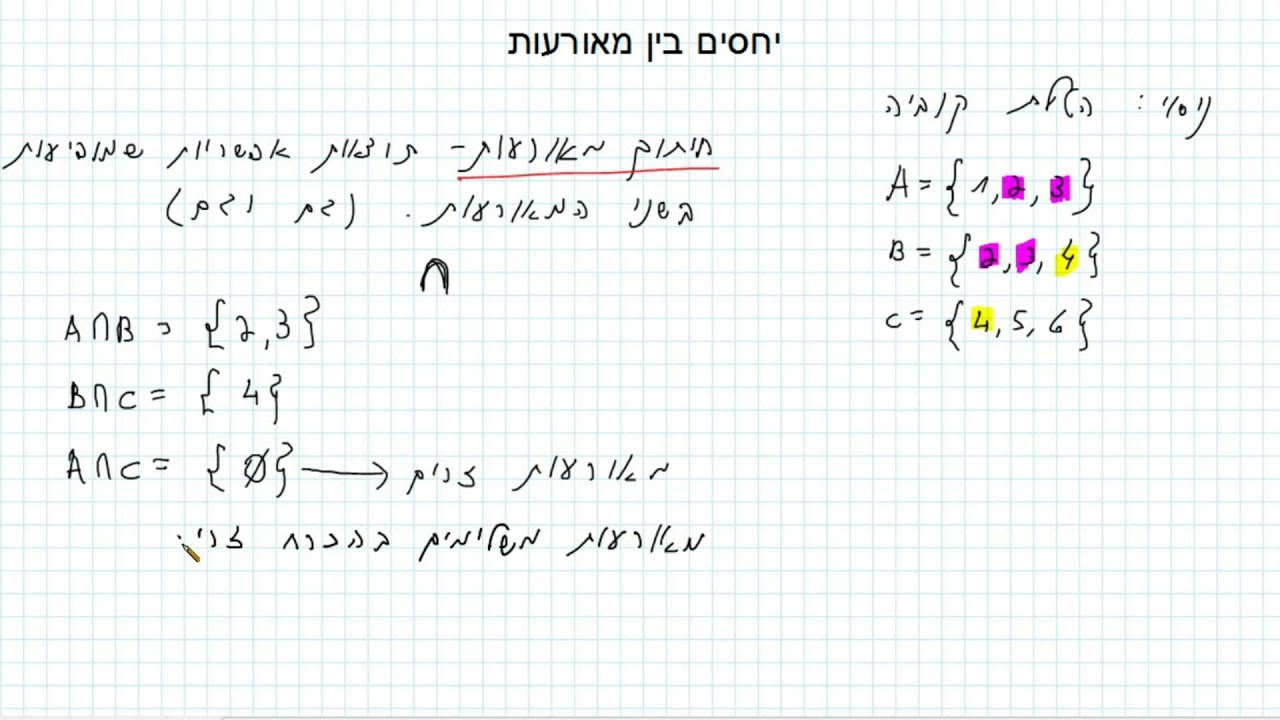 יחסים בין מאורעות
ניסוי: הטלת קוביה
A = {1, 2, 3}
B = {2, 3, 4}
C = {4, 5, 6}
חיתוך מאורעות - תוצאות אפשריות שמופיעות
בשני המאורעות. (גם וגם)
∩
A∩B = {2,3}
B∩C = {4}
A∩C = {∅} → מאורעות זרים
מאורעות משלימים בהכרח זרי